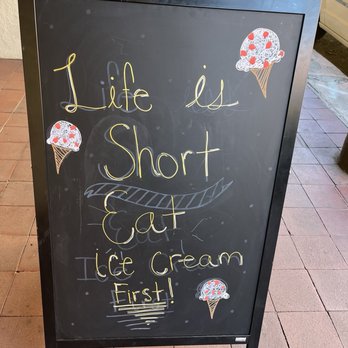 Life is
Short
Eat
ice cream
First!